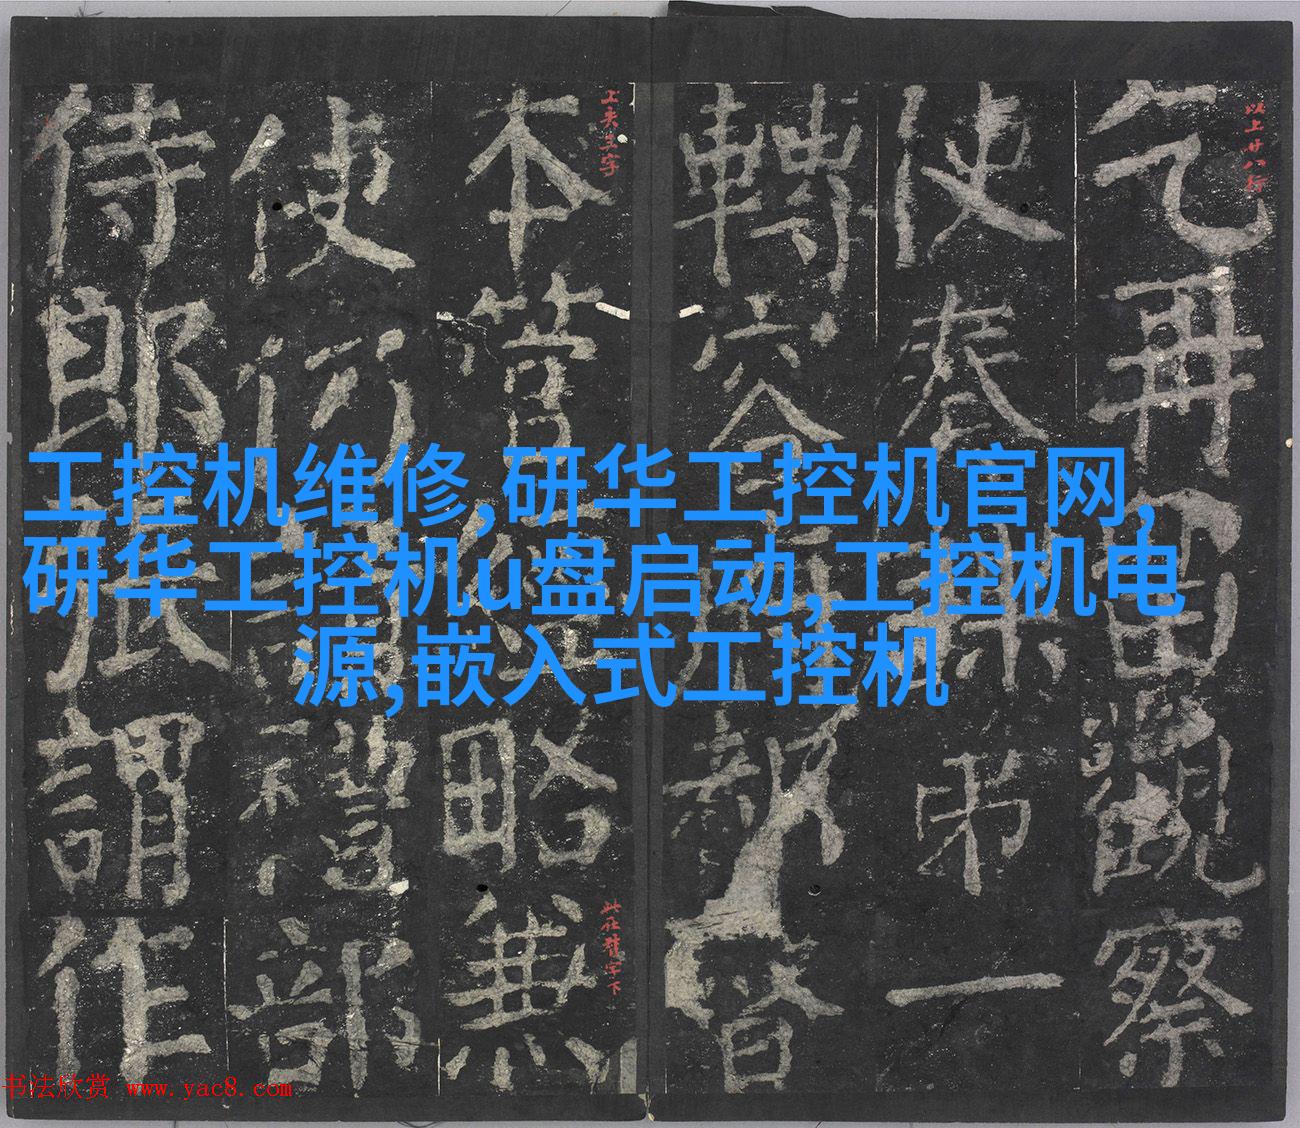 工控机维修,研华工控机官网,
研华工控机u盘启动,工控机电
源,嵌入式工控机
以上廿八行
乞再留觀察
使奏弟一
轉容都督
上夾三字
本管經略
此在督字下
使仍請禮部
侍郎張謂作
书法欣赏 www.yac8.com